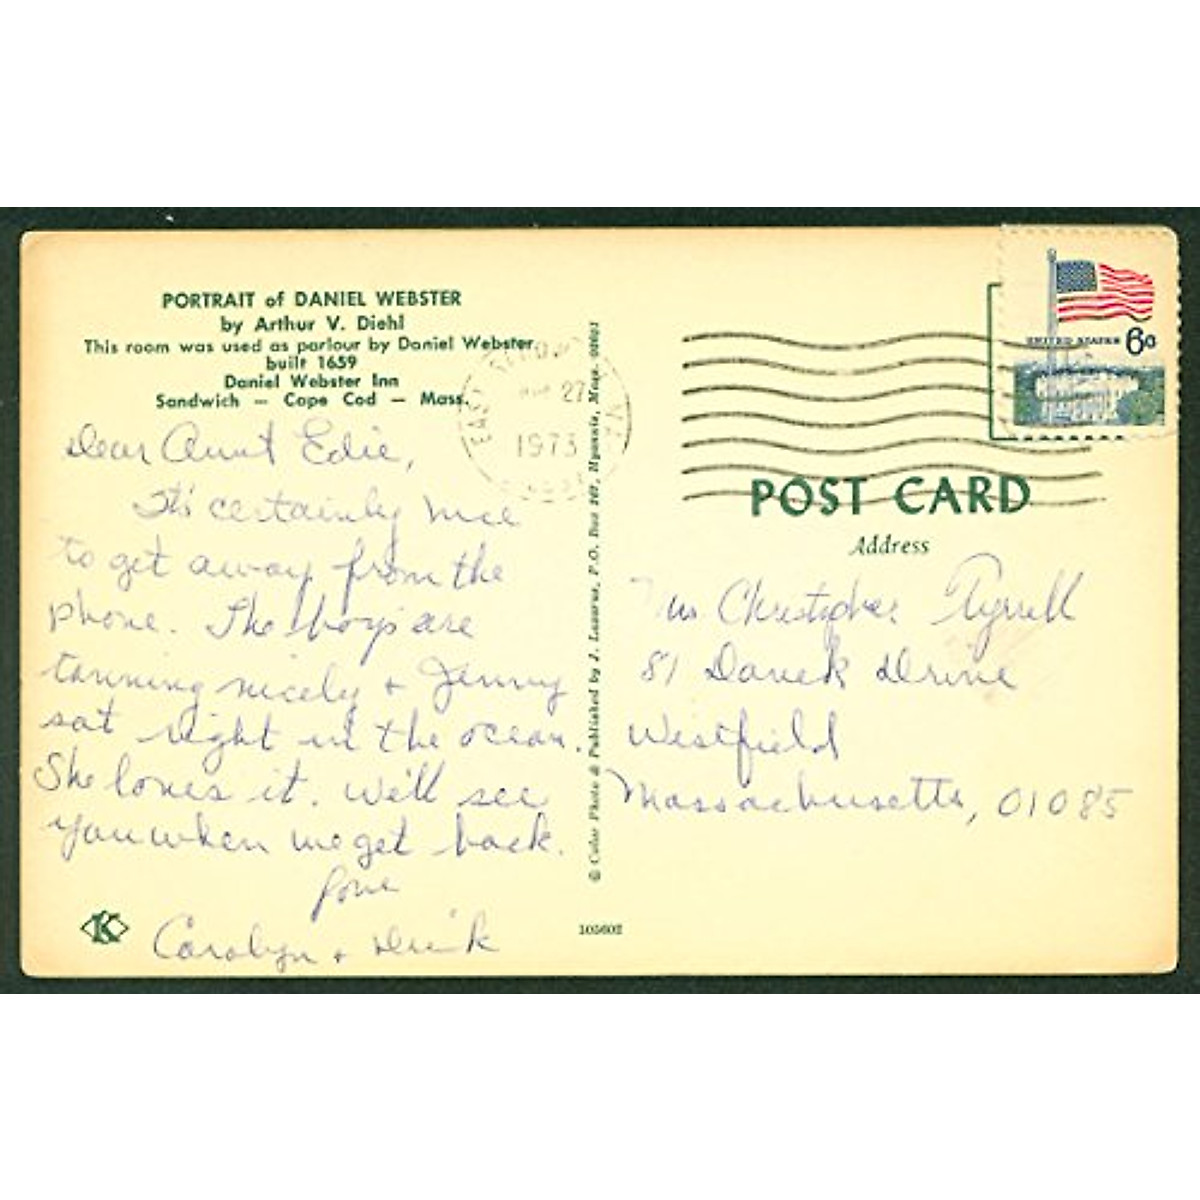 PORTRAIT of DANIEL WEBSTER
by Arthur V. Diehl
This room was used as parlour by Daniel Webster,
built 1659
Daniel Webster Inn
Sandwich — Cape Cod — Mass.
Dear Aunt Edie,
It's certainly nice
to get away from the
phone. The boys are
tanning nicely + Jenny
sat right in the ocean.
She loves it. We'll see
you when we get back.
Love
Carolyn +
K
105602
© Color Photo & Published by J. Lazarus, P.O. Box Hyannis, Mass.
EAST
27
1973
UNITED STATES 6c
POST CARD
Address
Christopher Tyrrell
81 Drive
Westfield
Massachusetts, 01085